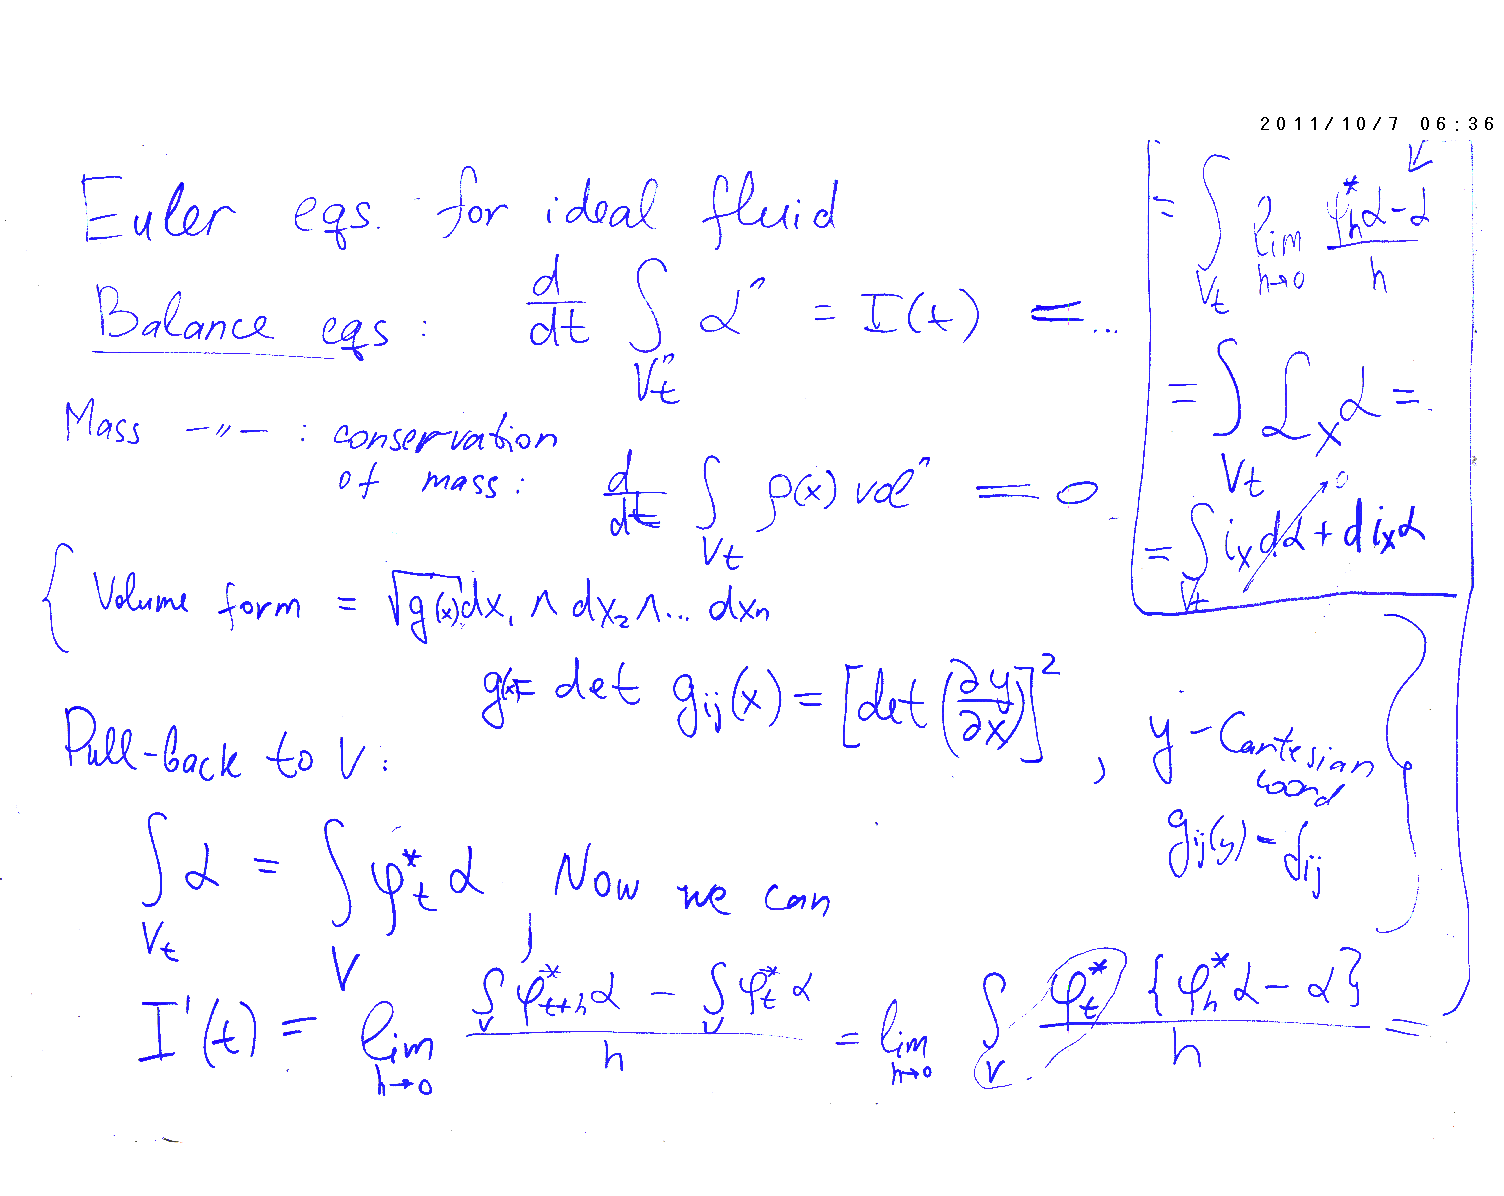 2011/10/7 06:36
Euler eqs. for ideal fluid
Balance eqs: d/dt ∫_{V_t^n} α^n = I(t) = ...
Mass —〃— : conservation
of mass: d/dt ∫_{V_t} ρ(x) vol^n = 0
{ Volume form = √g(x) dx_1 ∧ dx_2 ∧ ... dx_n
g(x) = det g_ij(x) = [det (∂y/∂x)]^2 , y - Cartesian
coord
g_ij(y) = δ_ij }
Pull-back to V:
∫_{V_t} α = ∫_V φ_t^* α , Now we can
I'(t) = lim_{h→0} (∫_V φ_{t+h}^* α − ∫_V φ_t^* α)/h = lim_{h→0} ∫_V φ_t^* {φ_h^* α − α}/h =
= ∫_{V_t} lim_{h→0} (φ_h^* α − α)/h
= ∫_{V_t} L_X α =
= ∫_{V_t} i_X dα + d i_X α
0